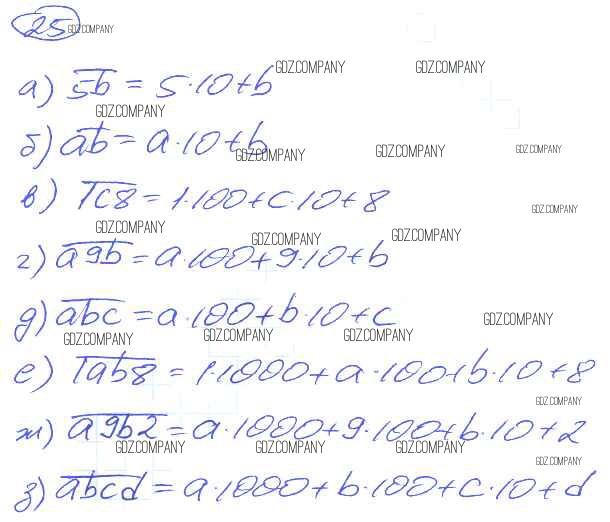 25 GDZ.COMPANY
а) 5b = 5·10+b GDZ.COMPANY GDZ.COMPANY
GDZ.COMPANY
б) ab = a·10+b GDZ.COMPANY GDZ.COMPANY GDZ.COMPANY
в) 1c8 = 1·100+c·10+8 GDZ.COMPANY
GDZ.COMPANY GDZ.COMPANY GDZ.COMPANY
г) a9b = a·100+9·10+b
д) abc = a·100+b·10+c GDZ.COMPANY
GDZ.COMPANY GDZ.COMPANY GDZ.COMPANY
е) 1ab8 = 1·1000+a·100+b·10+8
GDZ.COMPANY
ж) a9b2 = a·1000+9·100+b·10+2
GDZ.COMPANY GDZ.COMPANY GDZ.COMPANY
GDZ.COMPANY
з) abcd = a·1000+b·100+c·10+d